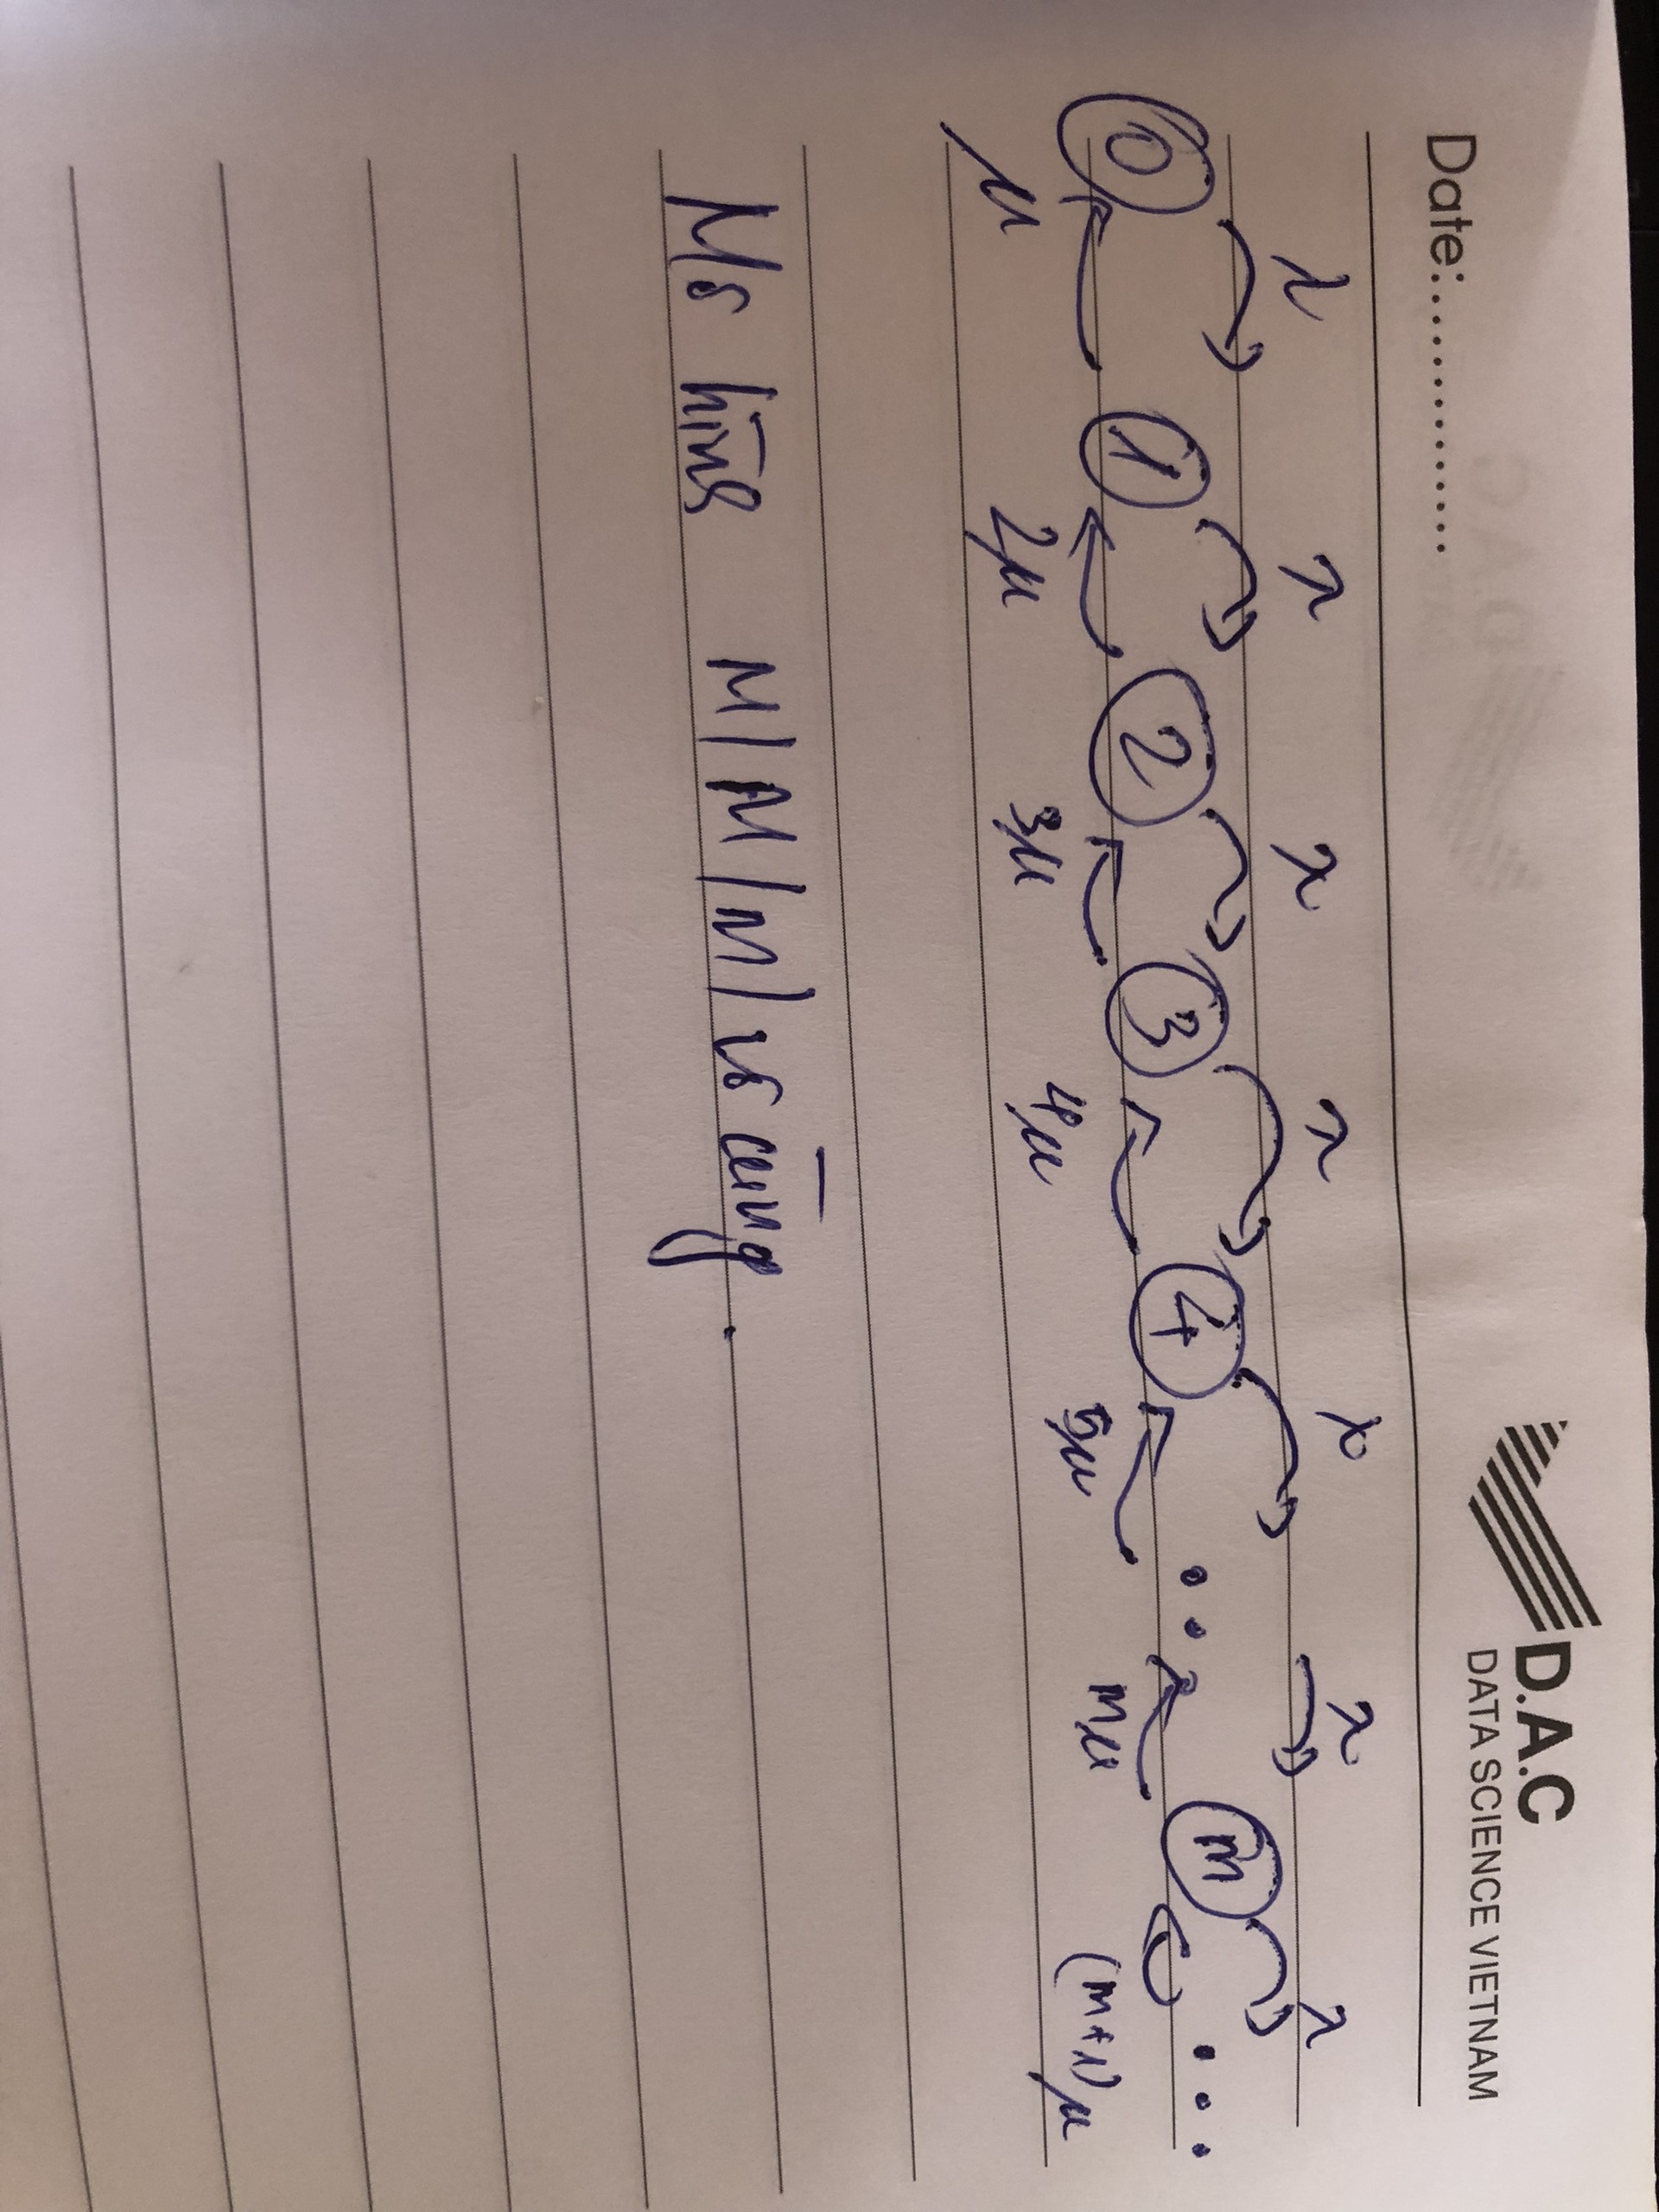 D.A.C
DATA SCIENCE VIETNAM
Date:.............
λ λ λ λ λ λ λ
0 1 2 3 4 .. m ...
μ 2μ 3μ 4μ 5μ mμ (m+1)μ
Mô hình M/M/m/vô cùng.